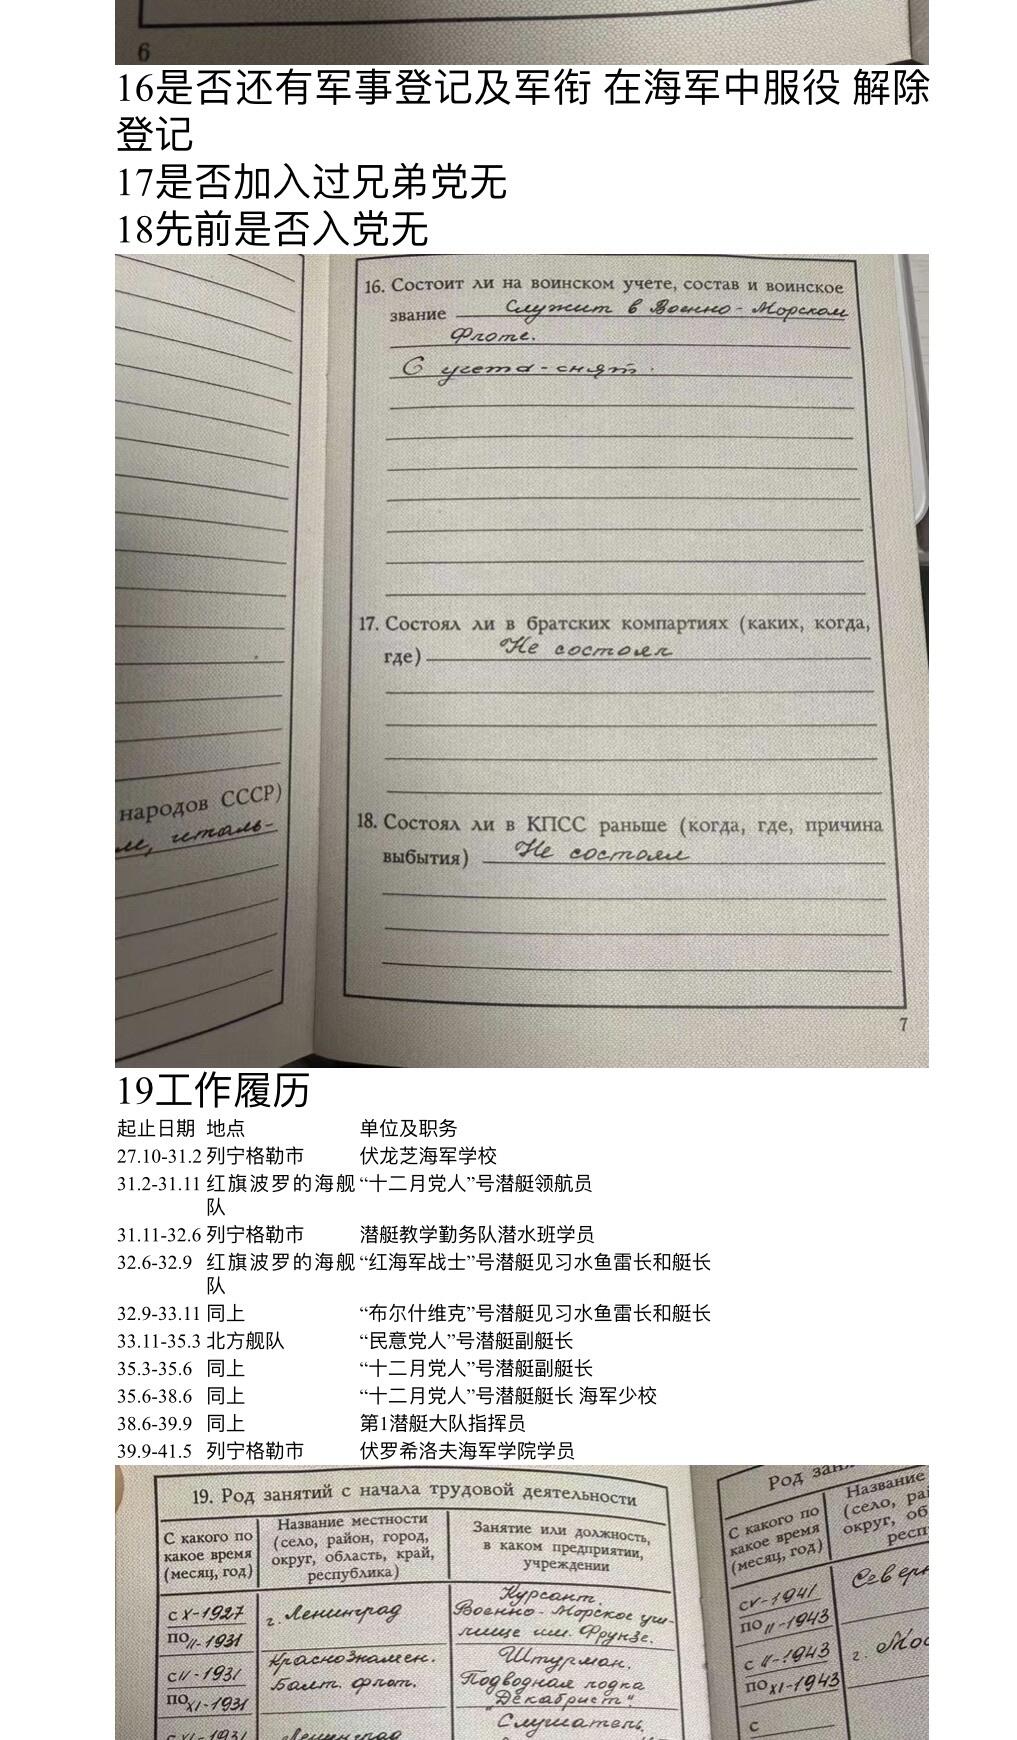 6
16是否还有军事登记及军衔 在海军中服役 解除
登记
17是否加入过兄弟党无
18先前是否入党无
16. Состоит ли на воинском учете, состав и воинское
звание Служит в Военно-Морском
Флоте.
С учета-снят.
17. Состоял ли в братских компартиях (каких, когда,
где) Не состоял
народов СССР)
18. Состоял ли в КПСС раньше (когда, где, причина
выбытия) Не состоял
7
19工作履历
起止日期 地点 单位及职务
27.10-31.2 列宁格勒市 伏龙芝海军学校
31.2-31.11 红旗波罗的海舰 “十二月党人”号潜艇领航员
队
31.11-32.6 列宁格勒市 潜艇教学勤务队潜水班学员
32.6-32.9 红旗波罗的海舰 “红海军战士”号潜艇见习水鱼雷长和艇长
队
32.9-33.11 同上 “布尔什维克”号潜艇见习水鱼雷长和艇长
33.11-35.3 北方舰队 “民意党人”号潜艇副艇长
35.3-35.6 同上 “十二月党人”号潜艇副艇长
35.6-38.6 同上 “十二月党人”号潜艇艇长 海军少校
38.6-39.9 同上 第1潜艇大队指挥员
39.9-41.5 列宁格勒市 伏罗希洛夫海军学院学员
19. Род занятий с начала трудовой деятельности
С какого по
какое время
(месяц, год)
Название местности
(село, район, город,
округ, область, край,
республика)
Занятие или должность,
в каком предприятии,
учреждении
с X-1927
по II-1931
г. Ленинград
Курсант.
Военно-Морское учи-
лище им. Фрунзе.
с II-1931
по XI-1931
Краснознамен.
Балт. флот.
Штурман.
Подводная лодка
"Декабрист"
Слушатель.
Род зан
С какого по
какое время
(месяц, год)
Название
(село, ра
округ, об
респ
с V-1941
по II-1943
Северн
с II-1943
по XI-1943
г. Мос
с